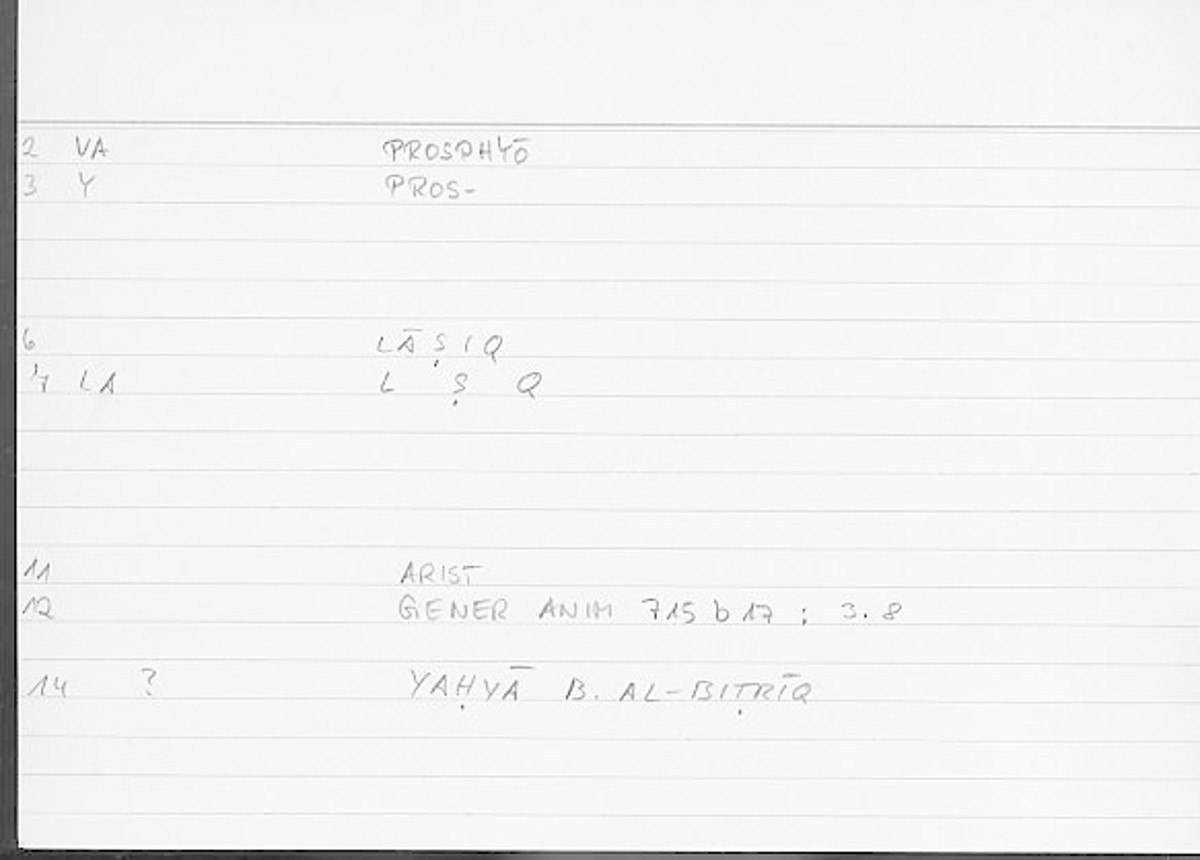 2 VA PROSPHYŌ
3 Y PROS-
6 LĀṢIQ
7 LA L Ṣ Q
11 ARIST
12 GENER ANIM 715 b 17 ; 3.8
14 ? YAḤYĀ B. AL-BIṬRĪQ